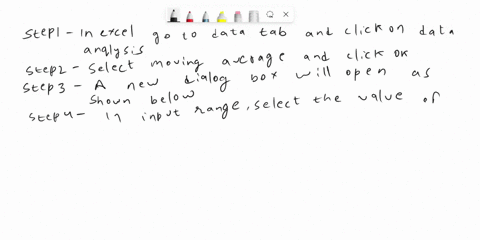 Step1 - In excel go to data tab and click on data
analysis
Step2 - Select moving average and click OK
Step3 - A new dialog box will open as
shown below
Step4 - In input range, select the value of